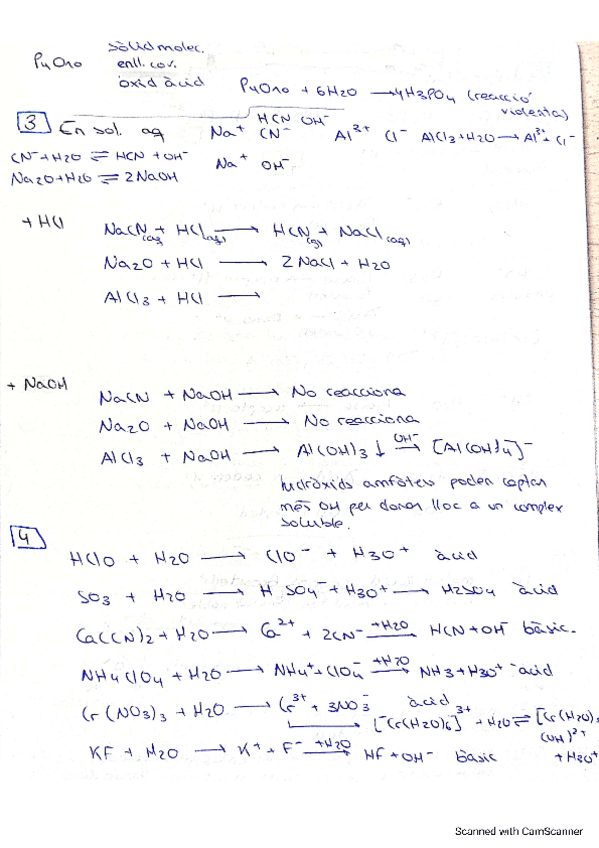 P4O10 sòlid molec.
enll. cov.
òxid àcid
P4O10 + 6H2O → 4H3PO4 (reacció violenta)
3 En sol. aq Na+ HCN OH- CN- Al3+ Cl- AlCl3+H2O → Al3+ Cl-
CN-+H2O ⇌ HCN + OH- Na+ OH-
Na2O+H2O ⇌ 2NaOH
+ HCl NaCN(aq) + HCl(aq) → HCN(g) + NaCl(aq)
Na2O + HCl → 2NaCl + H2O
AlCl3 + HCl →
+ NaOH NaCN + NaOH → No reacciona
Na2O + NaOH → No reacciona
AlCl3 + NaOH → Al(OH)3 ↓ OH- → [Al(OH)4]-
hidròxids amfòters poden captar
més OH per donar lloc a un complex
soluble.
4
HClO + H2O → ClO- + H3O+ àcid
SO3 + H2O → HSO4- + H3O+ → H2SO4 àcid
Ca(CN)2 + H2O → Ca2+ + 2CN- +H2O → HCN + OH- bàsic.
NH4ClO4 + H2O → NH4+ + ClO4- +H2O → NH3 + H3O+ àcid
Cr(NO3)3 + H2O → Cr3+ + 3NO3- àcid
[Cr(H2O)6]3+ + H2O ⇌ [Cr(H2O)5(OH)2+ + H3O+
KF + H2O → K+ + F- +H2O → HF + OH- bàsic
Scanned with CamScanner